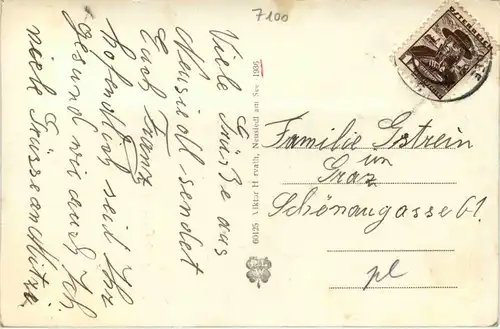 7100
Viele Grüße aus
Neusiedl sendet
Euch Franz
hofendlich seid Ihr
gesund wie auch Ich.
viele Grüsse an Mitzi.
60125 Viktor Horvath, Neusiedl am See 1936
ÖSTERREICH
Familie Ostrein
in
Graz
Schönaugasse 61.
pl